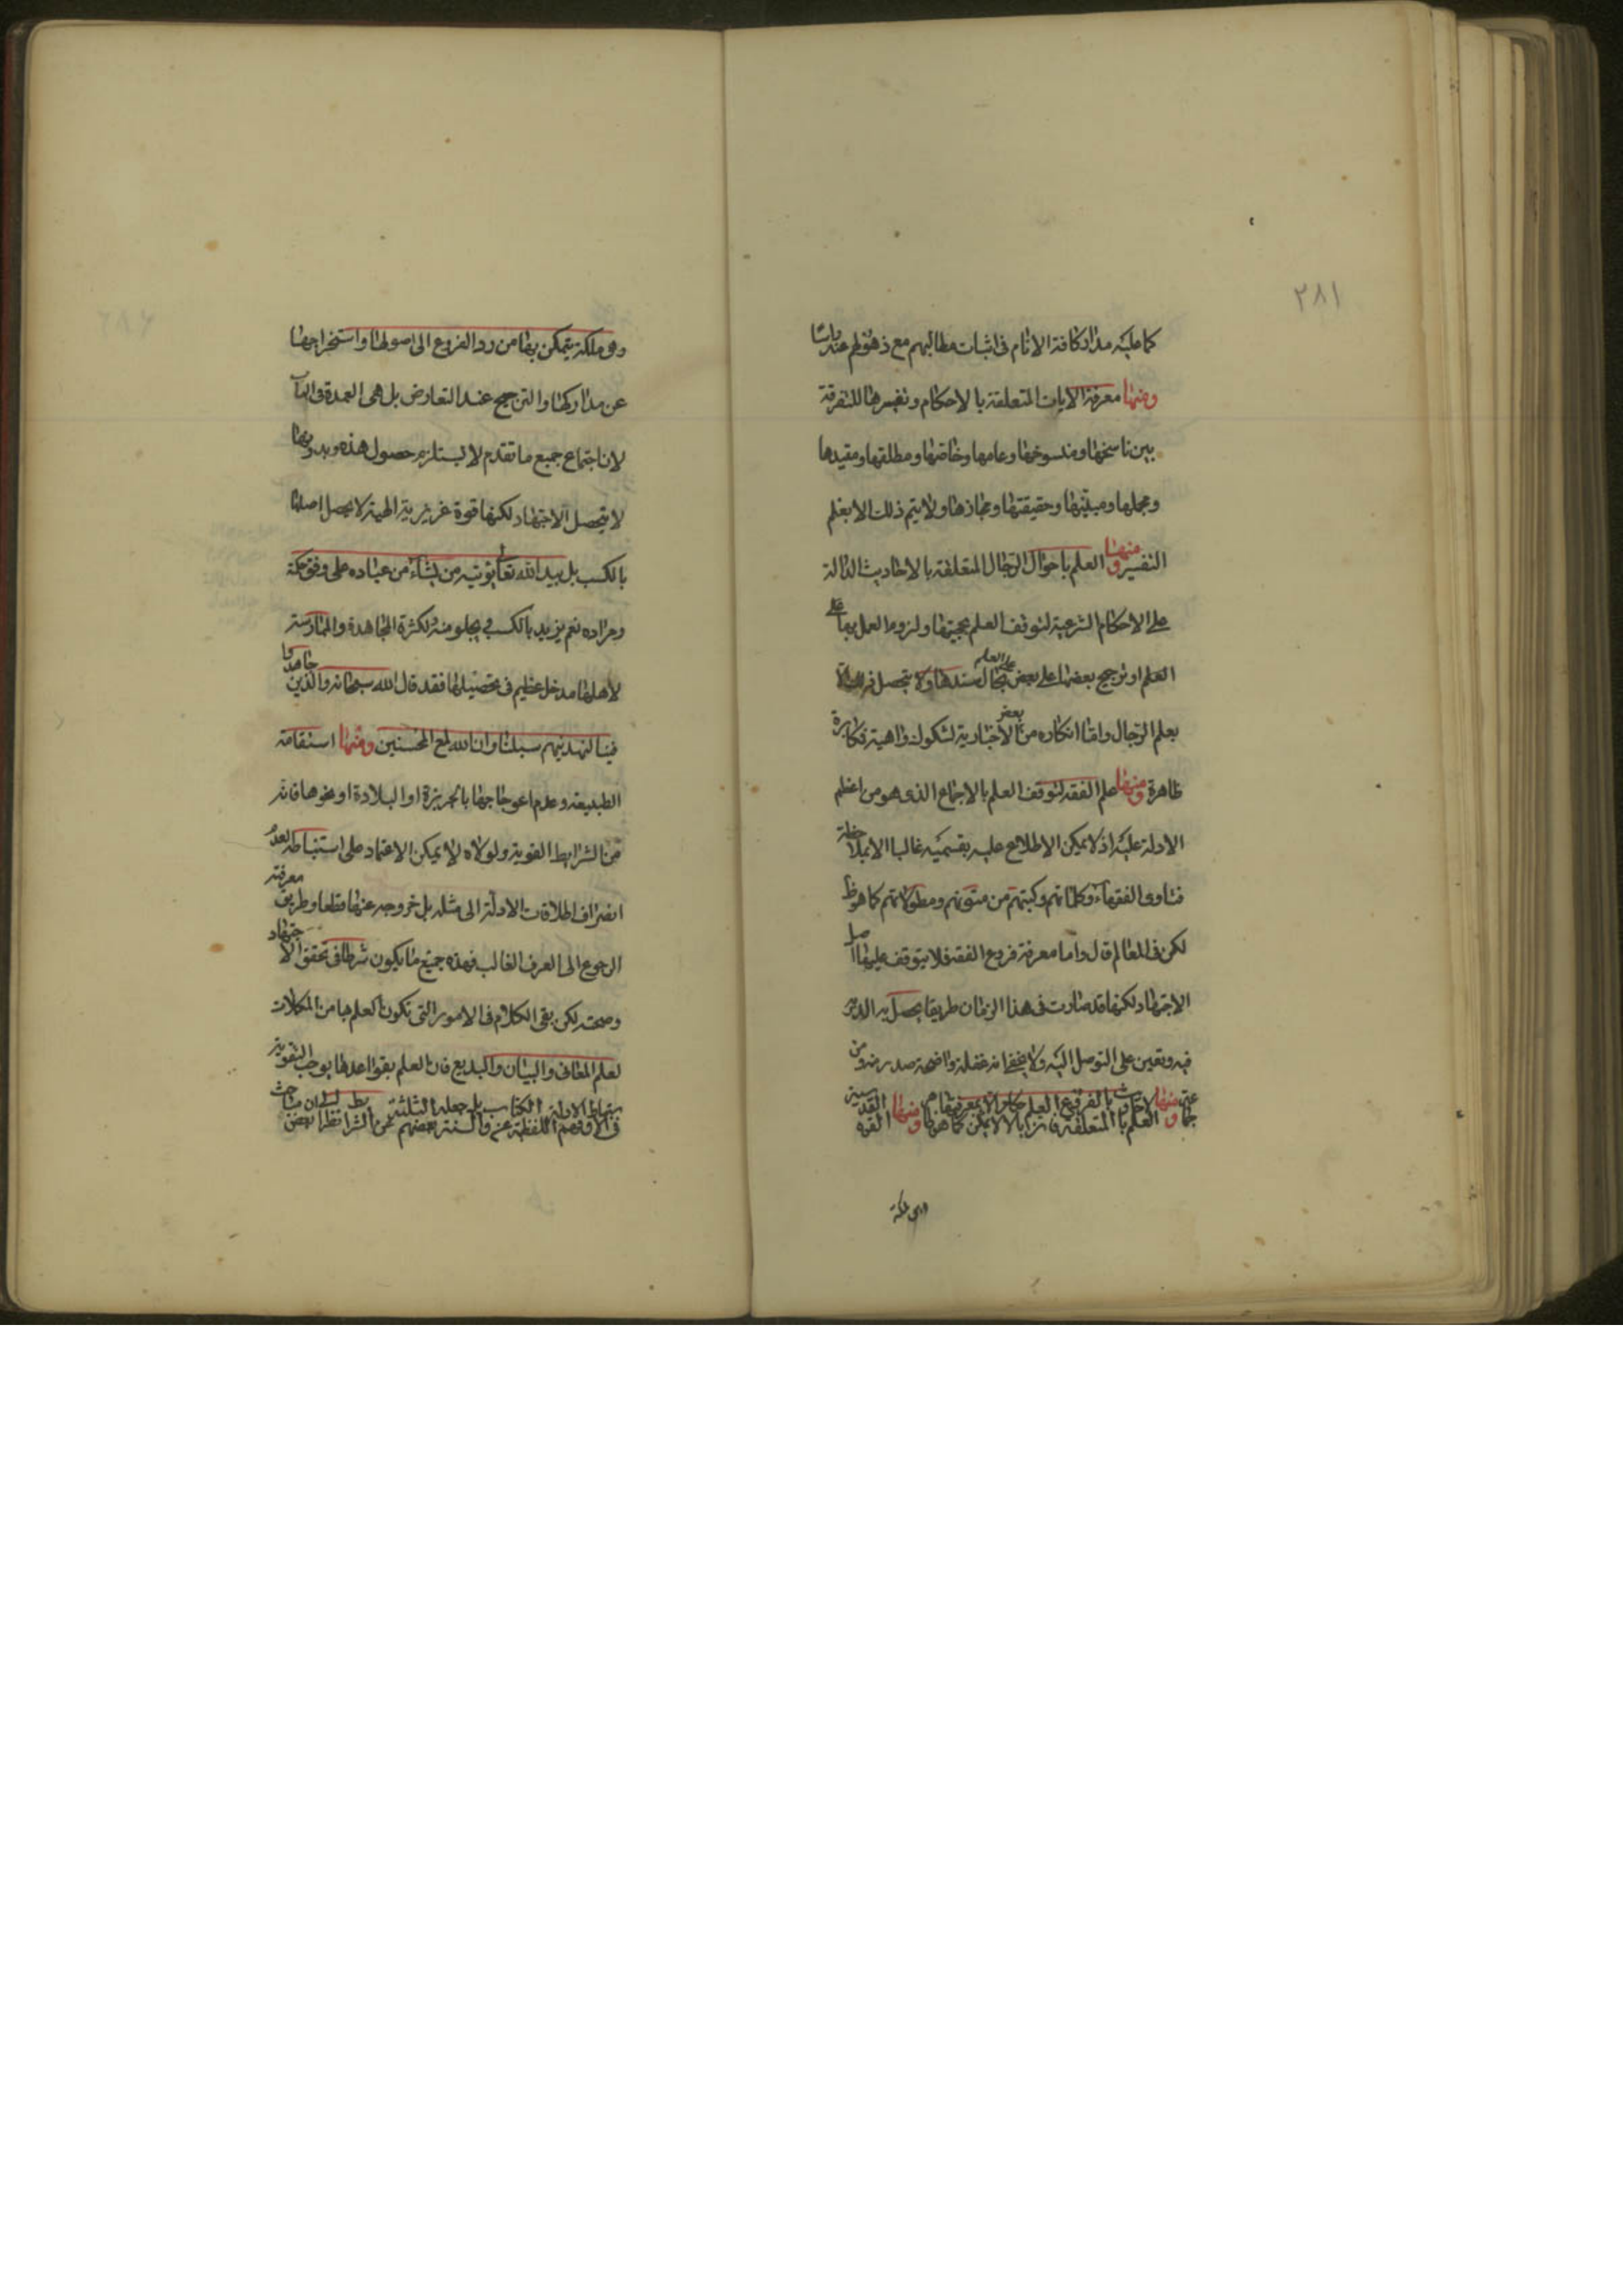 ٢٨١
كما عليه مدار كافة الانام فى اثبات مطالبهم مع ذهولهم عنه راسا
ومنها معرفة الايات المتعلقة بالاحكام وتفسيرها للتفرقة
بين ناسخها ومنسوخها وعامها وخاصها ومطلقها ومقيدها
ومجملها ومبينها وحقيقتها ومجازها ولا يتم ذلك الا بعلم
التفسير ومنها العلم باحوال الرجال المتعلقة بالاحاديث الدالة
على الاحكام الشرعية لتوقف العلم بحجيتها ولزوم العمل بها على
العلم او ترجيح بعضها على بعض على العلم بحال سندها ولا يتحصل الا
بعلم الرجال واما انكاره من بعض الاخبارية لشكوك واهية فمكابرة
ظاهرة ومنها علم الفقه لتوقف العلم بالاجماع الذى هو من اعظم
الادلة عليه اذ لا يمكن الاطلاع عليه بقسميه غالبا الا بملاحظة
فتاوى الفقهاء وكلماتهم وكتبهم من متونهم ومطولاتهم كما هو ظ
لكن فى المعالم قال واما معرفة فروع الفقه فلا يتوقف عليها اصل
الاجتهاد لكنها قد صارت فى هذا الزمان طريقا يحصل به الدربة
فيه وتعين على التوصل اليه ولا يخفى انه غفلة واضحة صدر منه ومن
ومنها العلم بالمتعلقة بالفروع
ومنها القوة القدسية
وهى ملكة
وهى ملكة يتمكن بها من رد الفروع الى اصولها واستخراجها
عن مداركها والترجيح عند التعارض بل هى العمدة فى الباب
لان اجتماع جميع ما تقدم لا يستلزم حصول هذه وبدونها
لا يتحصل الاجتهاد لكنها قوة غريزية الهية لا يحصل اصلها
بالكسب بل بيد الله تعالى يؤتيه من يشاء من عباده على وفق حكمة
ومراده نعم يزيد بالكسب فيجلو منه ولكثرة المجاهدة والممارسة
لاهلها مدخل عظيم فى تحصيلها فقد قال الله سبحانه والذين جاهدوا
فينا لنهدينهم سبلنا وان الله لمع المحسنين ومنها استقامة
الطبيعة وعدم اعوجاجها بالجربزة او البلادة او نحوها فانه
من الشرايط القوية ولولاه لا يمكن الاعتماد على استنباطه لعدم
انصراف اطلاقات الادلة الى مثله بل خروجه عنها قطعا وطريق معرفته
الرجوع الى العرف الغالب فهذه جميع ما يكون شرطا فى تحقق الاجتهاد
وصحته لكن بقى الكلام فى الامور التى تكون العلم بها من المكملات
لعلم المعانى والبيان والبديع فان العلم بقواعدها يوجب التقوية